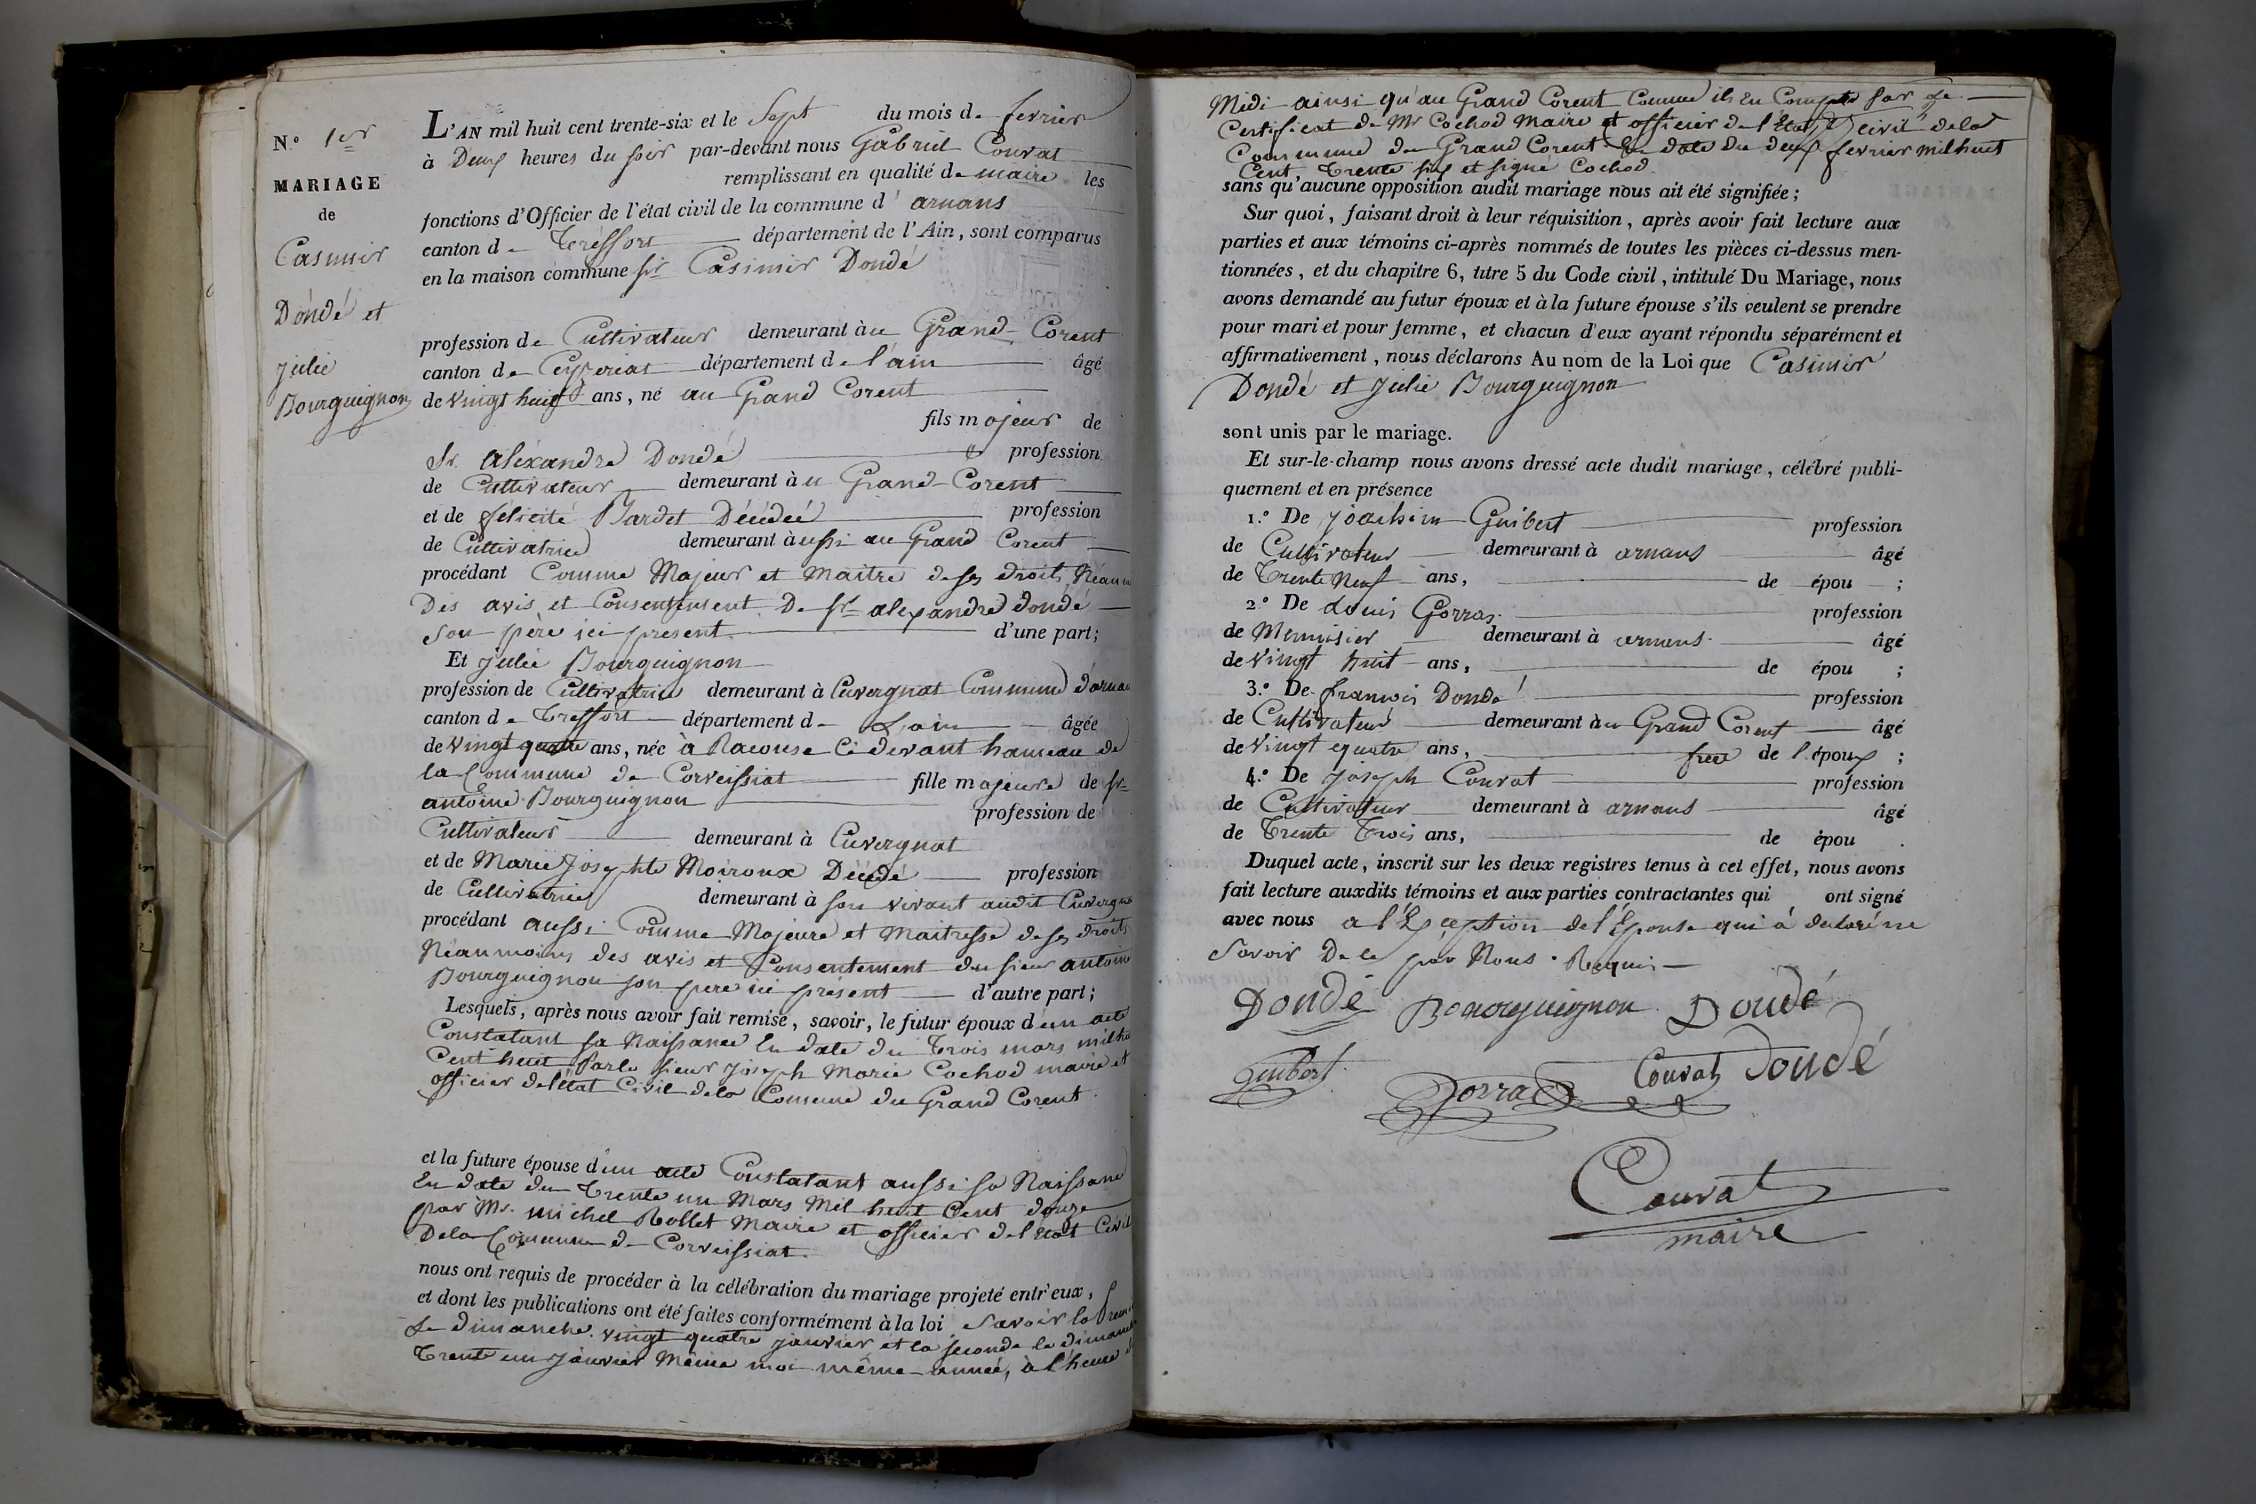 N.° 1er
MARIAGE
de
Casimir
Dondé et
Julie
Bourguignon
L'AN mil huit cent trente-six et le Sept du mois de fevrier
à Deux heures du soir par-devant nous Gabriel Couvat
remplissant en qualité de maire les
fonctions d'Officier de l'état civil de la commune d' arnans
canton de Tréffort département de l'Ain, sont comparus
en la maison commune sr Casimir Dondé
profession de Cultivateur demeurant au Grand-Corent
canton de Ceyzeriat département de l'ain âgé
de vingt huit ans, né au Grand Corent
fils majeur de
Sr. alexandre Dondé profession
de Cultivateur demeurant au Grand-Corent
et de félicité Bardet Décédée profession
de Cultivatrice demeurant aussi au Grand Corent
procédant Comme Majeur et Maitre de ses droits Néanm
Des avis et Consentement De sr alexandre dondé
son père ici present d'une part;
Et Julie Bourguignon
profession de Cultivatrice demeurant à Cuvergnat Commune d'arnan
canton de Treffort département de Lain âgée
de vingt quatre ans, née à Racouse Cidevant hameau de
la Commune de Corveissiat fille majeure de sr
antoine Bourguignon profession de
Cultivateur demeurant à Cuvergnat
et de Marie Josephte Moiroux Décédé profession
de Cultivatrice demeurant à son vivant audit Cuvergna
procédant aussi Comme Majeure et Maitresse de ses droits
Néanmoins des avis et Consentement du sieur antoine
Bourguignon son pere ici présent d'autre part;
Lesquels, après nous avoir fait remise, savoir, le futur époux d'un acte
Constatant sa Naissance En date du Trois mars milhu
Cent huit Par le sieur Joseph Marie Cochod maire et
officier de l'état Civil de la Comune du Grand Corent.
et la future épouse d'un acte Constatant aussi sa Naissance
En date du Trente un Mars Mil huit Cent douze
par Mr. Michel Rollet Maire et officier de l'état Civil
De la Commune de Corveissiat.
nous ont requis de procéder à la célébration du mariage projeté entr'eux,
et dont les publications ont été faites conformément à la loi Savoir la Premi
Le dimanche vingt quatre janvier et la seconde le dimanche
Trente un Janvier Même moi même année, à l'heure d
Midi ainsi qu'au Grand Corent Comme ils En Compte par le
Certificat de Mr Cochod Maire et officier de l'état civil de la
Commune du Grand Corent En date du deux fevrier milhuit
Cent Trente six et signé Cochod.
sans qu'aucune opposition audit mariage nous ait été signifiée;
Sur quoi, faisant droit à leur réquisition, après avoir fait lecture aux
parties et aux témoins ci-après nommés de toutes les pièces ci-dessus men-
tionnées, et du chapitre 6, titre 5 du Code civil, intitulé Du Mariage, nous
avons demandé au futur époux et à la future épouse s'ils veulent se prendre
pour mari et pour femme, et chacun d'eux ayant répondu séparément et
affirmativement, nous déclarons Au nom de la Loi que Casimir
Dondé et Julie Bourguignon
sont unis par le mariage.
Et sur-le-champ nous avons dressé acte dudit mariage, célébré publi-
quement et en présence
1.° De Joachim Guibert profession
de Cultivateur demeurant à arnans âgé
de Trente Neuf ans, de épou ;
2.° De Louis Gorras profession
de Menuisier demeurant à arnans âgé
de Vingt huit ans, de épou ;
3.° De françois Dondé profession
de Cultivateur demeurant au Grand Corent âgé
de Vingt quatre ans, frere de l'époux ;
4.° De Joseph Couvat profession
de Cultivateur demeurant à arnans âgé
de Trente Trois ans, de épou .
Duquel acte, inscrit sur les deux registres tenus à cet effet, nous avons
fait lecture auxdits témoins et aux parties contractantes qui ont signé
avec nous a l'Exception de l'Epouse qui à declaré ne
Savoir De ce par Nous Requis
Dondé Bourguignon Dondé
Guibert Gorras Couvat Dondé
Couvat
maire